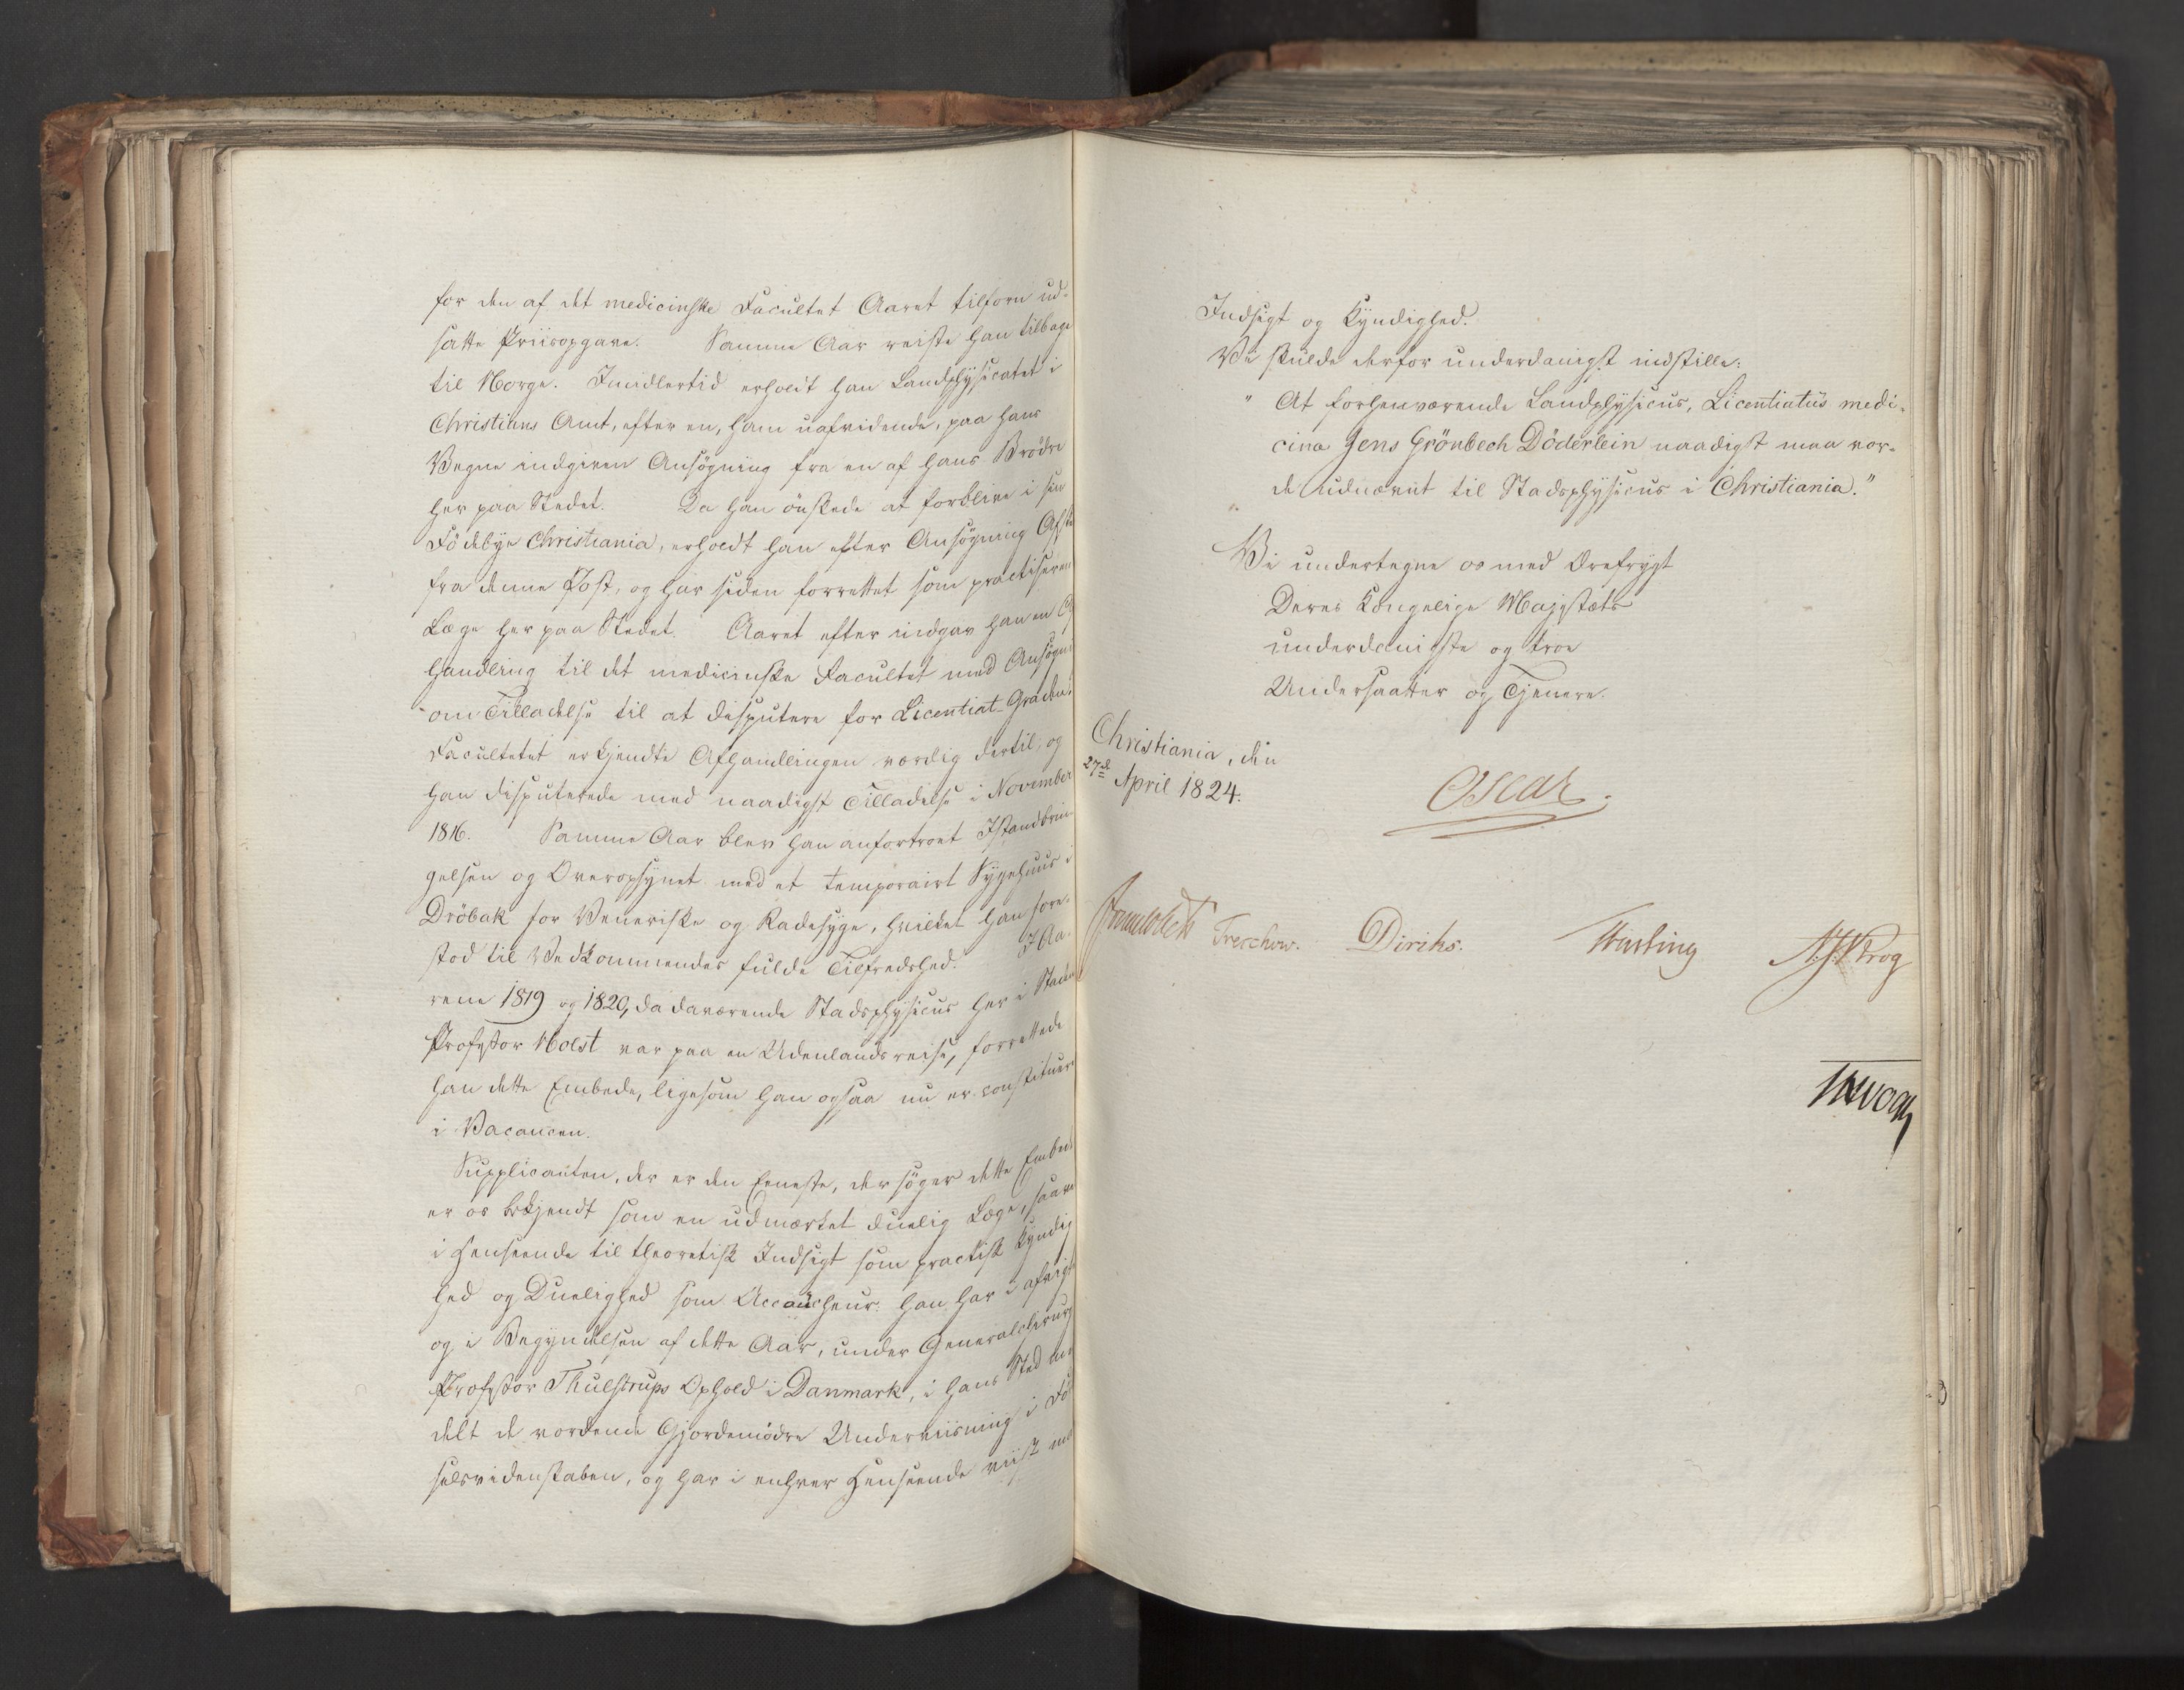 for den af det medicinske Facultet Aaret tilforn ud-
satte Priisopgave. Samme Aar reiste han tilbage
til Norge. Imidlertid erholdt han Landphysicatet i
Christians Amt, efter en, ham uafvidende, paa hans
Vegne indgiven Ansøgning fra en af hans Brödre
her paa Stedet. Da han önskede at forblive i sin
Födebye Christiania, erholdt han efter Ansögning
fra denne Post, og har siden forrettet som practiseren
Læge her paa Stedet. Aaret efter indgav han en
handling til det medicinske Facultet med Ansøgn
om Tilladelse til at disputere for Licentiat-Graden.
Facultetet erkjendte Afhandlingen værdig dertil, og
han disputerede med naadigst Tilladelse i November
1816. Samme Aar blev han anfortroet Istandbrin-
gelsen og Overopsynet med et temporairt Sygehuus i
Dröbak for Veneriske og Radesyge, hvilket han fore-
stod til Vedkommendes fulde Tilfredshed. I Aa-
rene 1819 og 1820, da daværende Stadsphysicus her i Staden
Professor Holst var paa en Udenlandsreise, forrettede
han dette Embede, ligesom han ogsaa nu er constitueret
i Vacancen.
Supplicanten, der er den Eneste, der söger dette Embed
er os bekjendt som en udmærket duelig Læge, saavel
i Henseende til theoretisk Indsigt som practisk Kyndig
hed og Duelighed som Accoucheur. Han har i afvigt
og i Begyndelsen af dette Aar, under Generalchirurg
Professor Thulstrups Ophold i Danmark, i hans Sted med
delt de vordende Gjordemödre Underviisning i Föd
selsvidenskaben, og har i enhver Henseende viist me
Indsigt og Kyndighed.
Vi skulde derfor underdanigst indstille:
" At forhenværende Landphysicus, Licentiatus medi-
cina Jens Grönbech Döderlein naadigst maa vor-
de udnævnt til Stadsphysicus i Christiania."
Vi undertegne os med Ærefrygt
Deres Kongelige Majestæts
underdanigste og troe
Undersaatter og Tjenere.
Christiania, den
27de April 1824.
Oscar.
Sommerhielm Treschow. Diriks. Motzfeldt N. J. Krog
Vogt